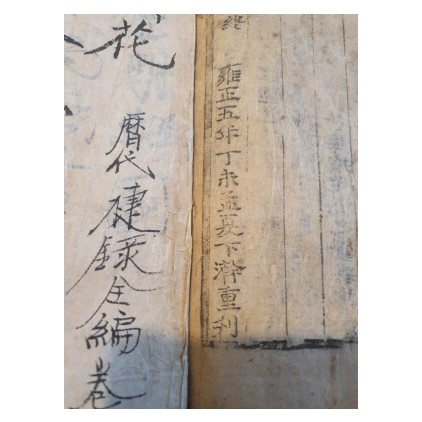 終
雍正五年丁未孟夏下澣重刊
曆代捷錄全編卷
花